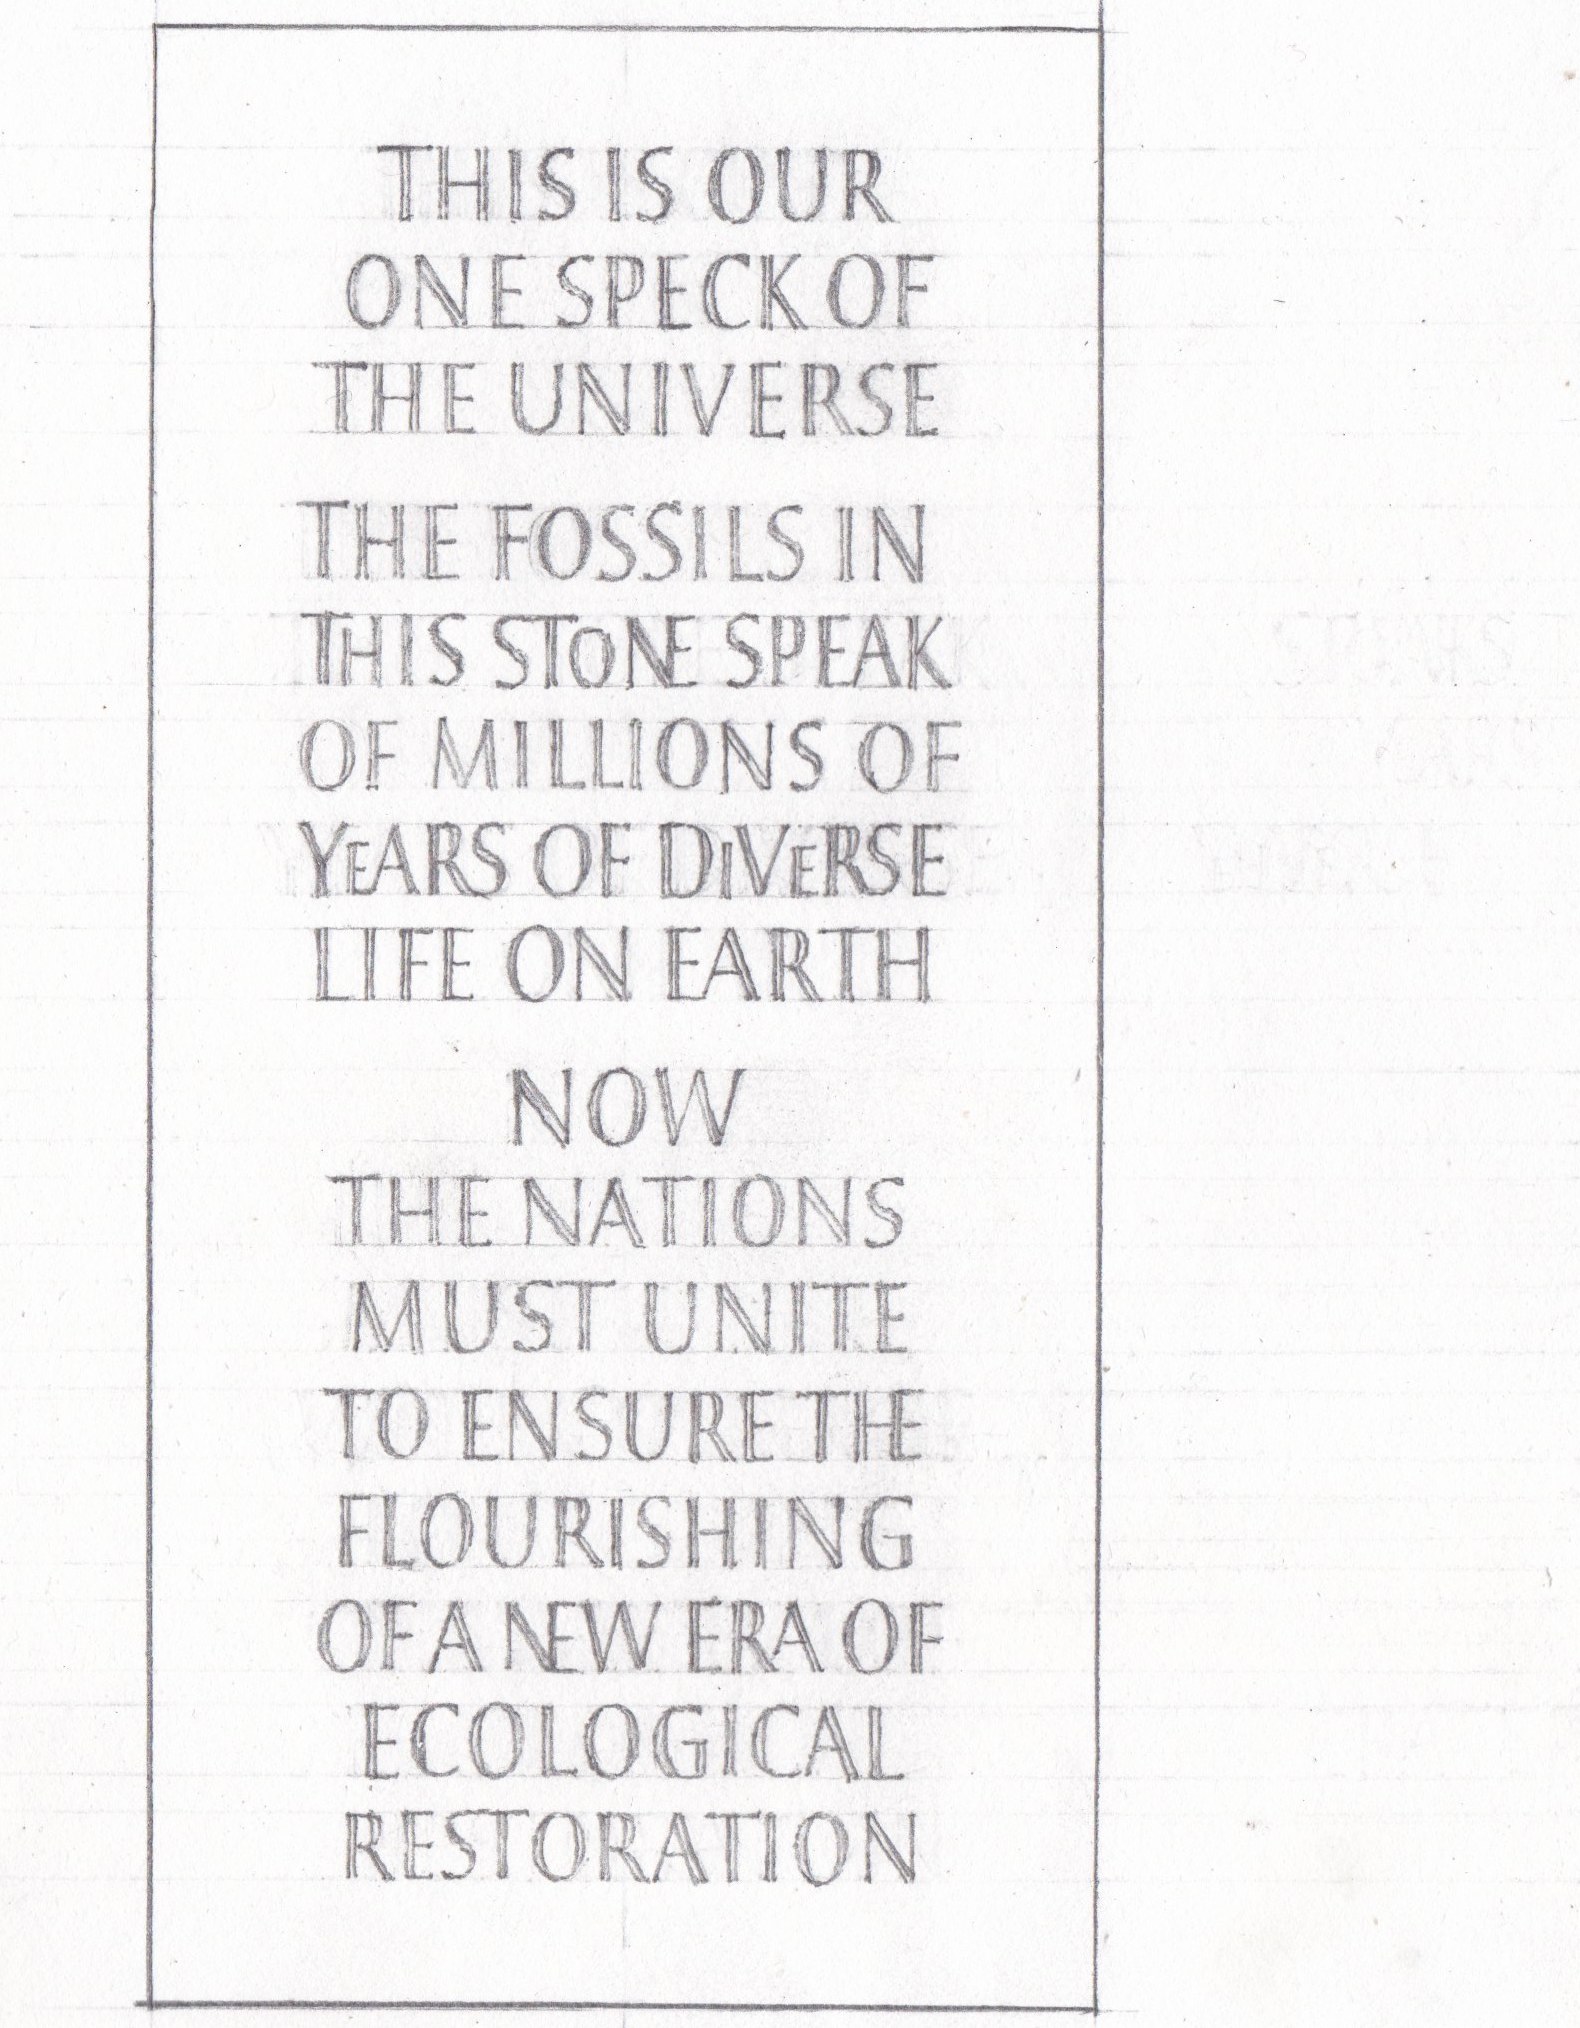 THIS IS OUR
ONE SPECK OF
THE UNIVERSE
THE FOSSILS IN
THIS STONE SPEAK
OF MILLIONS OF
YEARS OF DIVERSE
LIFE ON EARTH
NOW
THE NATIONS
MUST UNITE
TO ENSURE THE
FLOURISHING
OF A NEW ERA OF
ECOLOGICAL
RESTORATION